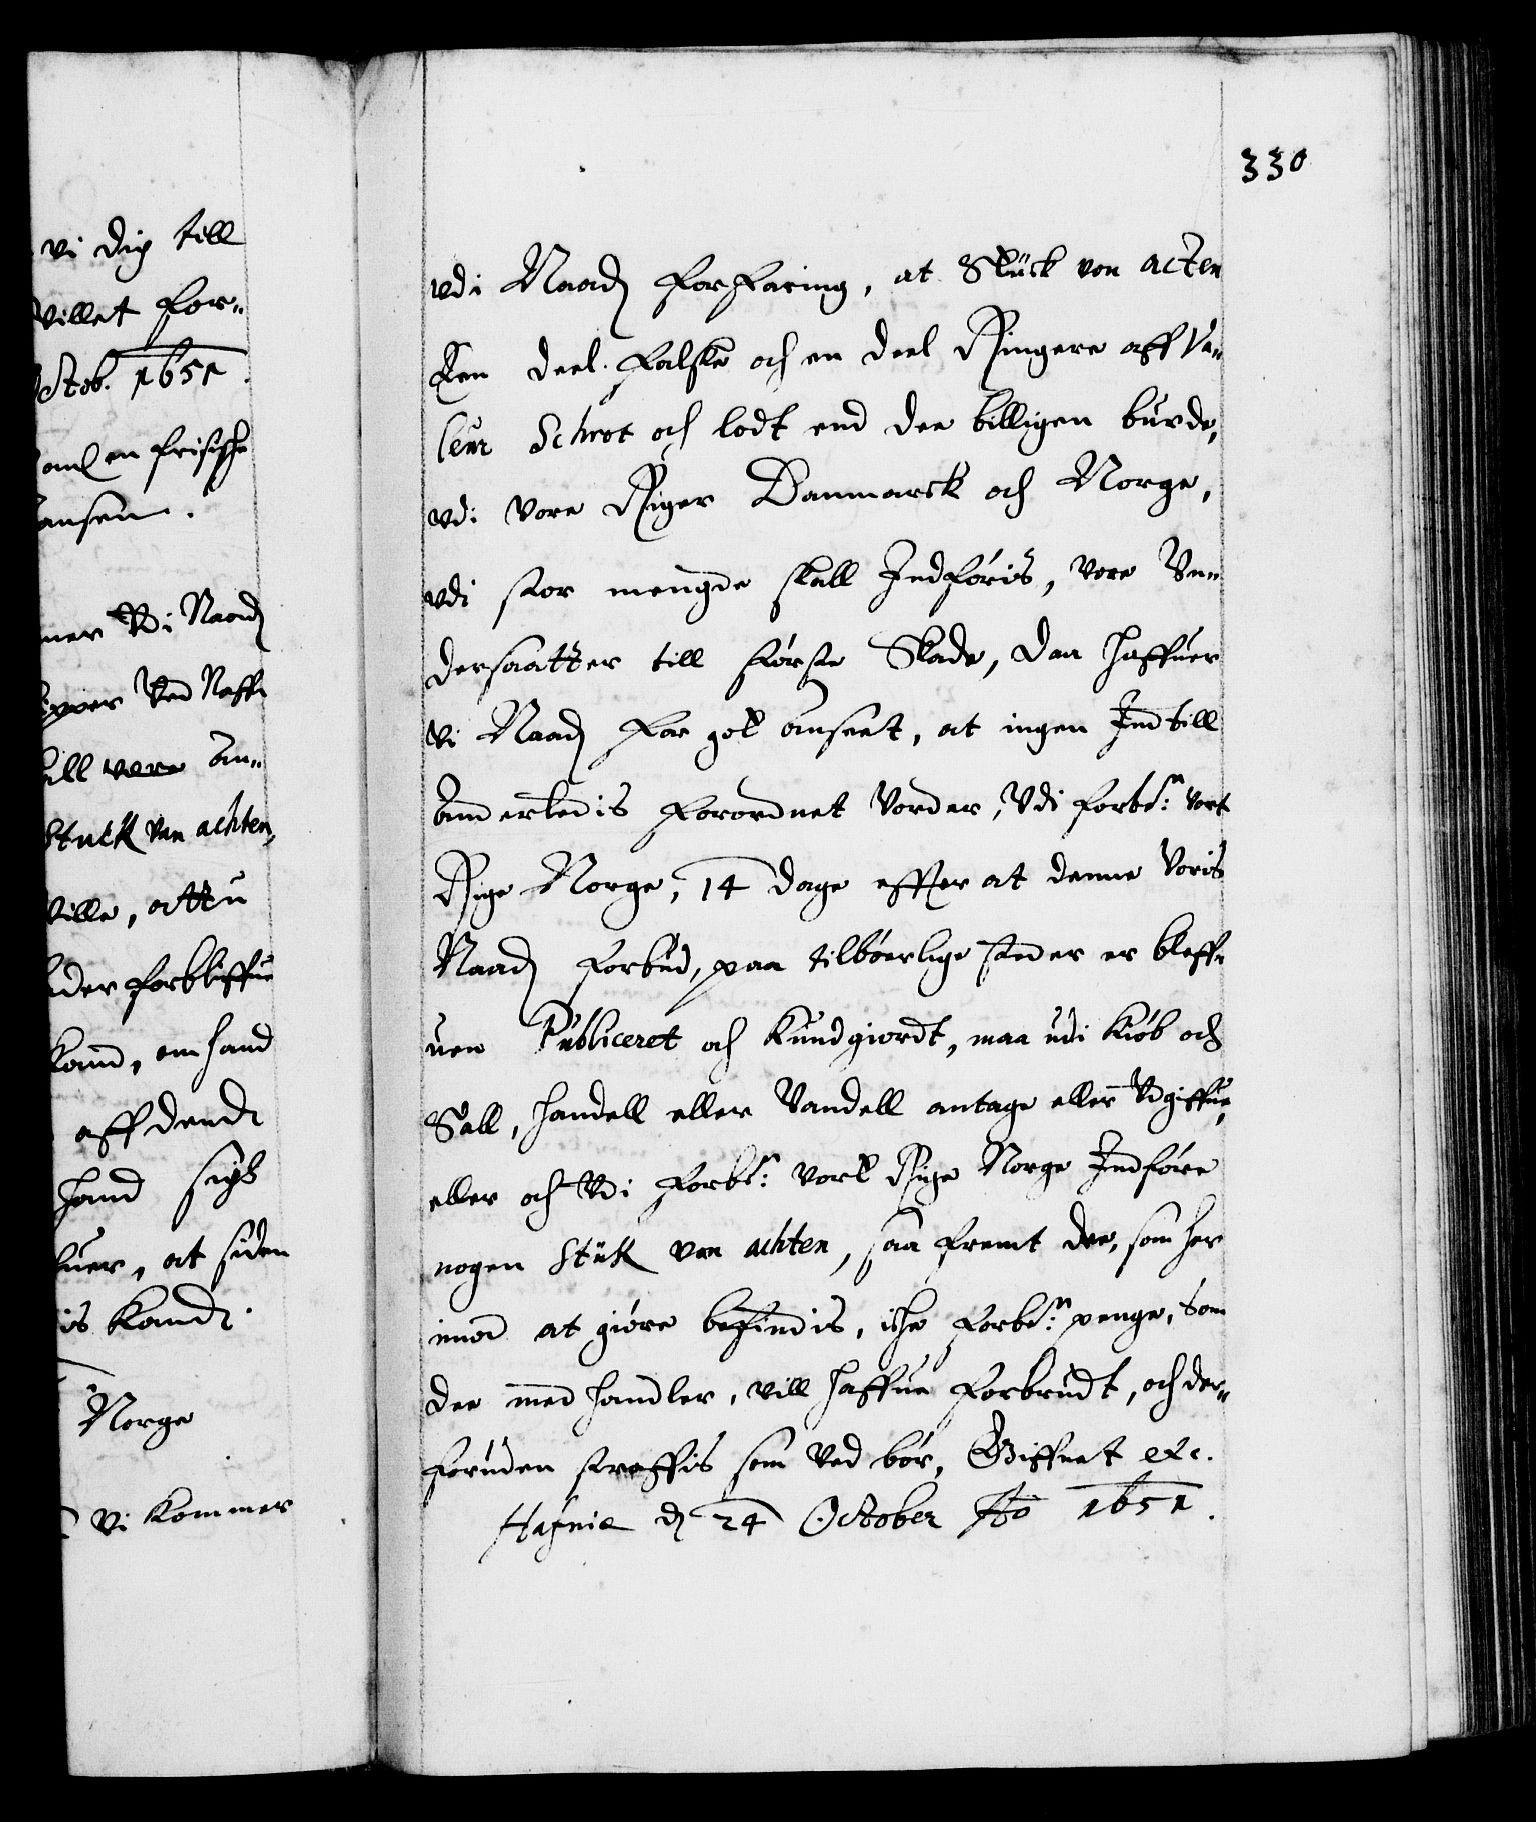 vi dig till
villet for-
Octob. 1651.
en frisische
ansen.
mer Vdi Naad
Ved Naff-
ill vere An-
Stuck van achten,
ville, att u
der forbliffue
kand, em hand
aff dend
hand sigh
uer, at siden
is kand.
Norge
vi kommer
330
vdi Naad forfaring, at Stück von acten
Een deel falske och en deel Ringere aff Va-
leur Schrot och lodt end de billigen burde,
vdi vore Riger Danmarck och Norge,
vdi stor mengde skall Indføris, vore Vn-
dersaatter till største Skade, Daa haffuer
vi Naad for got anseet, at ingen Indtill
Anderledis forordnet vorder, Vdi forbe.n vort
Rige Norge, 14 dage effter at denne Voris
Naad forbud, paa tilbøerlige steder er bleff-
uen Publiceret och Kundgiordt, maa udi Kiøb och
Sall, handell eller Vandell antage eller Vdgiffue,
eller och Vdi forbe.n vort Rige Norge Indføre
nogen Stük van achten, saa fremt de, som her
imod at giøre befindis, iche forbe.n penge, som
de med handler, vill haffue forbrudt, och der-
foruden straffis som ved bør, Giffuet etc.
Hafniæ d 24 October Ao 1651.